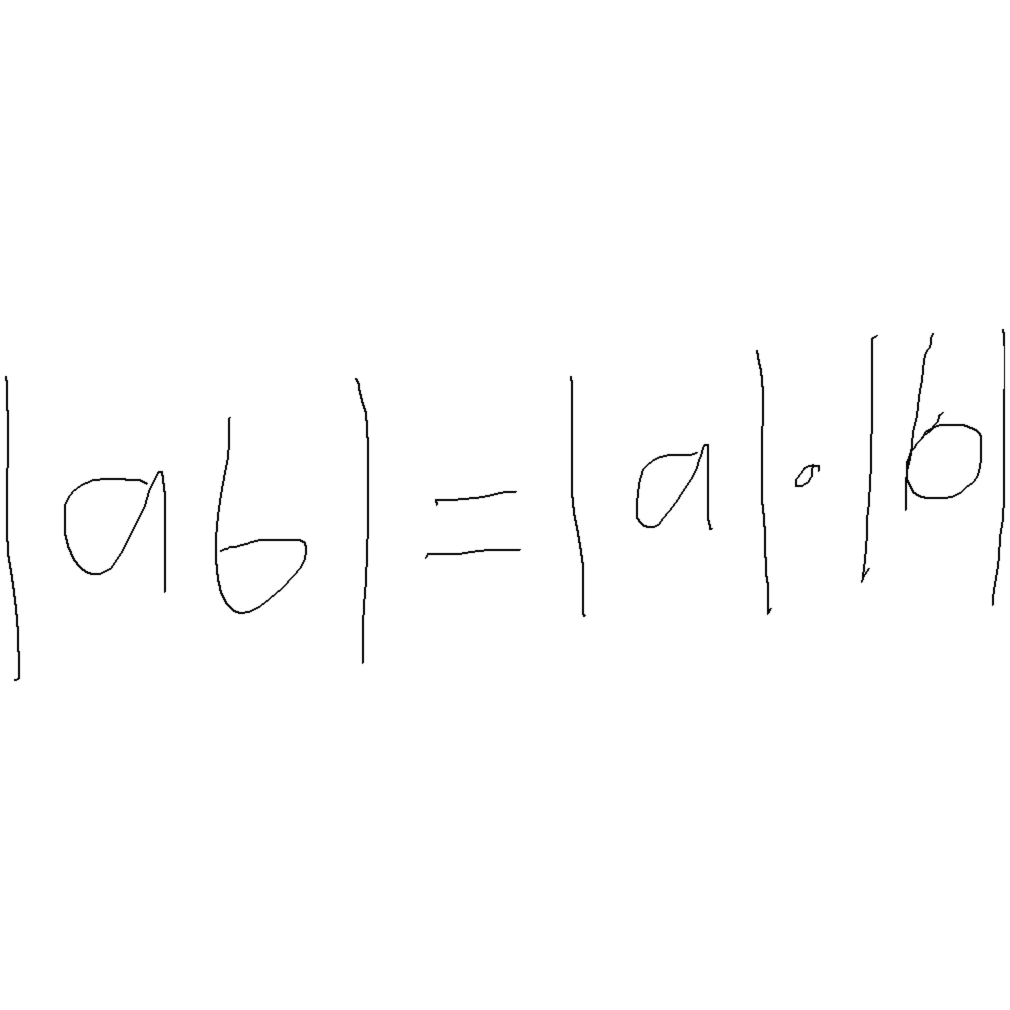 |ab| = |a| · |b|